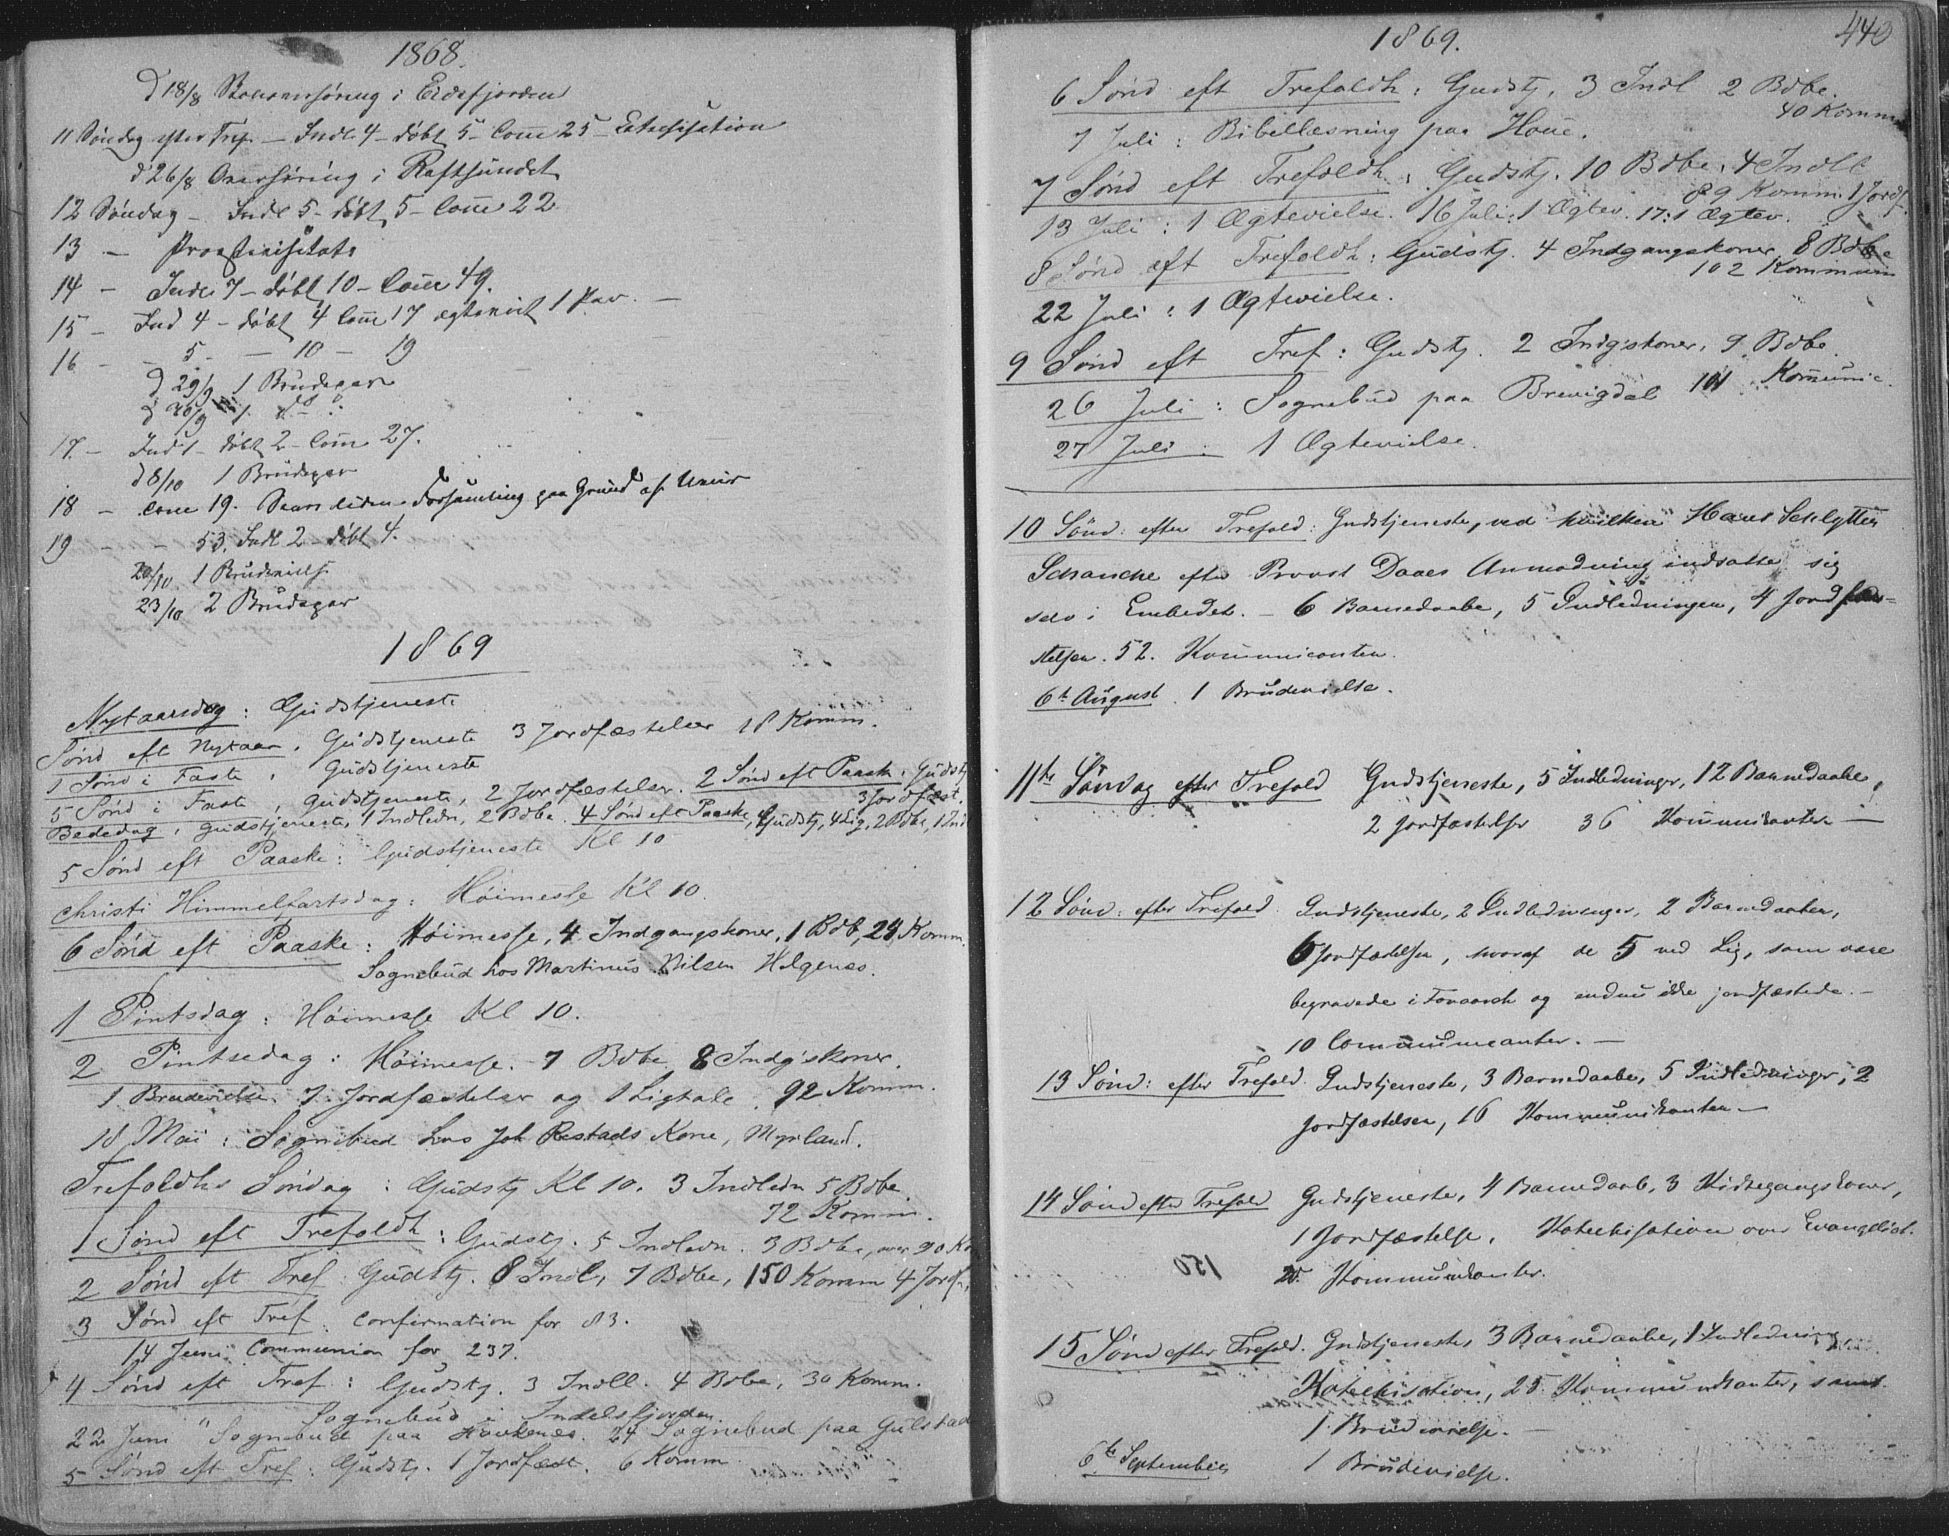 1868.
d 18/8 Skoleoverhøring i Eidsfjorden
11 Søndag efter Tref. – Indl. 4 – døbt 5 – Com 25 – Catechisation
d 26/8 Overhøring i Raftsundet
12 Søndag – Indl 5 – døbt 5 – Com 22
13 – Provstevisitats
14 – Indl 7 – døbt 10 – Com 49.
15 – Ind 4 – døbt 4 Com 17 ægteviet 1 Par. –
16 – – 5 – – 10 – 19
d 29/9 1 Brudepar
d 26/9 1 do
17. – Ind 1 – døbt 2 – Com 27.
d 8/10 1 Brudepar
18 – Com 19. Forsamling paa Grund af Uveir
19 – – 53. Indl 2 – døbt 4.
20/10. 1 Brudevielse
23/10 2 Brudepar
1869
Nytaarsdag: Gudstjeneste
Sønd eft Nytaar, Gudstjeneste 3 Jordfæstelser 18 Komm.
1 Sønd i Faste, Gudstjeneste
5 Sønd i Faste, Gudstjeneste, 2 Jordfæstelser. 2 Sønd eft Paaske, Gudstj
3 Jordfæst.
Bededag, Gudstjeneste, 1 Indledn, 2 Bdbe. 4 Sønd eft Paaske, Gudstj, 4 Lig, 2 Bdbe, 1 Ind
5 Sønd eft Paaske: Gudstjeneste Kl 10
Christi Himmelfartsdag: Høimesse Kl 10.
6 Sønd eft Paaske: Høimesse, 4 Indgangskoner, 1 Bdb, 29 Komm.
Sognebud hos Martinus Nilsen Helgenes.
1 Pintsdag: Høimesse Kl 10.
2 Pintsedag: Høimesse. 7 Bdbe 8 Indg'skoner.
1 Brudevielse. 7 Jordfæstelser og 1 Ligtale. 92 Komm.
18 Mai: Sognebud hos Joh Restads Kone, Myrland.
Trefoldhs Søndag: Gudstj Kl 10. 3 Indledn 5 Bdbe.
72 Komm.
1 Sønd eft Trefoldh: Gudstj. 5 Indledn. 3 Bdbe, over 90 Ko
2 Sønd eft Tref: Gudstj. 8 Indl, 7 Bdbe, 150 Komm 4 Jordf.
3 Sønd eft Tref. Confirmation for 83.
14 Juni Communion for 237.
4 Sønd eft Tref: Gudstj. 3 Indl. 4 Bdbe, 30 Komm.
Sognebud i Indelsfjorden.
22 Juni " Sognebud paa Haukenæs. 24 Sognebud paa Gulstad
5 Sønd eft Tref: Gudstj. 1 Jordfæst. 6 Komm.
440
1869.
6 Sønd eft Trefoldh: Gudstj. 3 Indl 2 Bdbe.
40 Komm
7 Juli: Bibellæsning paa Houe.
7 Sønd eft Trefoldh: Gudstj. 10 Bdbe, 4 Indl
89 Komm. 1 Jordf.
13 Juli: 1 Ægtevielse. 16 Juli, 1 Ægtev. 17: 1 Ægtev.
8 Sønd eft Trefoldh: Gudstj. 4 Indgangskoner 8 Bdbe
102 Kommun
22 Juli: 1 Ægtevielse.
9 Sønd eft Tref: Gudstj. 2 Indg'skoner, 9 Bdbe.
101 Kommunic.
26 Juli: Sognebud paa Brevigdal
27 Juli: 1 Ægtevielse.
10 Sønd. efter Trefold: Gudstjeneste, ved hvilken Hans Schlytter
Schancke efter Provst Daaes Anmodning indsatte sig
selv i Embedet. – 6 Barnedaabe, 5 Indledninger, 4 Jordfæs=
telser. 52. Kommunicanter.
6te August 1 Brudevielse.
11te Søndag efter Trefold Gudstjeneste, 5 Indledninger, 12 Barnedaabe,
2 Jordfæstelser 36 Kommunikanter –
12 Sønd: efter Trefold Gudstjeneste, 2 Indledninger, 2 Barnedaaber,
6 Jordfæstelser, hvoraf de 5 ved Lig, som vare
begravede i Foraaret og endnu ikke jordfæstede. –
10 Communicanter. –
13 Sønd: efter Trefold. Gudstjeneste, 3 Barnedaabe, 5 Indledninger, 2
Jordfæstelser, 16 Kommunikanter –
14 Sønd efter Trefold Gudstjeneste, 4 Barnedaab, 3 Kirkegangskoner,
1 Jordfæstelse, Katechisation over Evangeliet.
20 Kommunikanter.
15 Sønd efter Trefold. Gudstjeneste, 3 Barnedaabe, 1 Indledning
Katechisation, 25 Kommunikanter, samt
1 Brudevielse. –
6te September 1 Brudevielse.